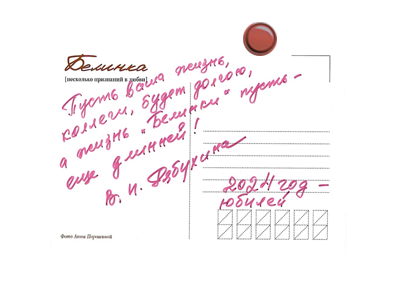 Белинка
[несколько признаний в любви]
Пусть ваша жизнь,
коллеги, будет долгою,
а жизнь "Белинки" пусть -
еще длинней!
В. И. Язбухина
2024 год -
юбилей
Фото Анны Порошиной